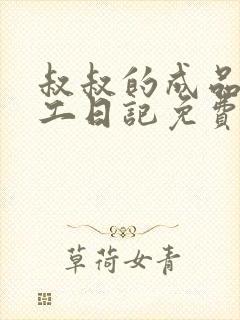 叔叔的成品
工日記免費
草荷女青